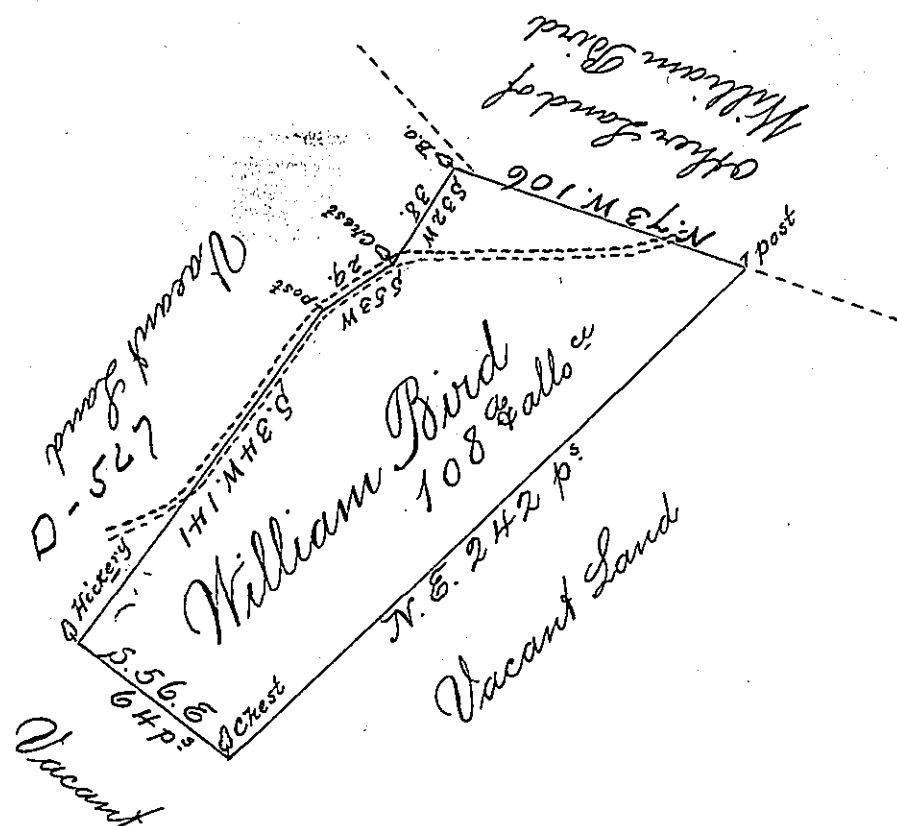 Other Land of
William Bird
B.o.
N. 73 W. 106
post
S32W
38.
Chest
29.
S53W
post
Vacant Land
D-567
S. 34 W. 141
William Bird
108 a & allo ce
N. E. 242 p.s
Vacant Land
Hickery
S. 56. E
64 p.s
Chest
Vacant